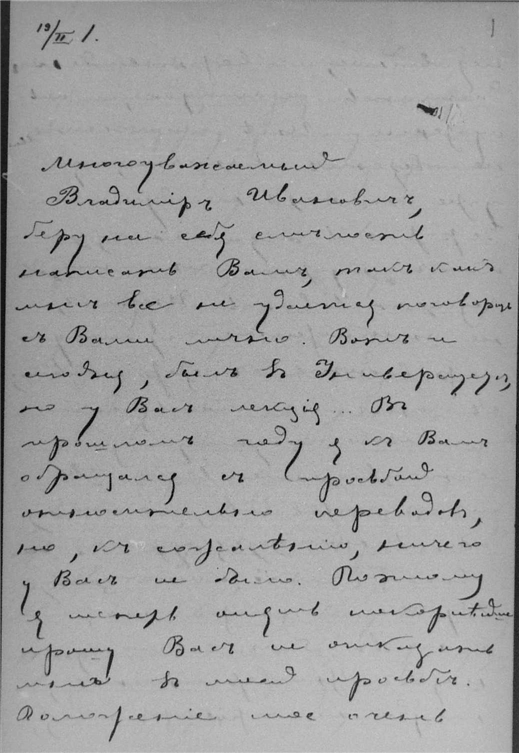 19/II 1.
1
Многоуважаемый
Владиміръ Ивановичъ,
беру на себя смѣлость
написать Вамъ, такъ какъ
мнѣ все не удается поговорить
съ Вами лично. Вотъ и
сегодня, былъ въ Университетѣ,
но у Васъ лекція... Въ
прошломъ году я къ Вамъ
обращался съ просьбой
относительно переводовъ,
но, къ сожалѣнію, ничего
у Васъ не было. Поэтому
я теперь опять покорнѣйше
прошу Васъ не отказать
мнѣ въ моей просьбѣ.
Положеніе мое очень